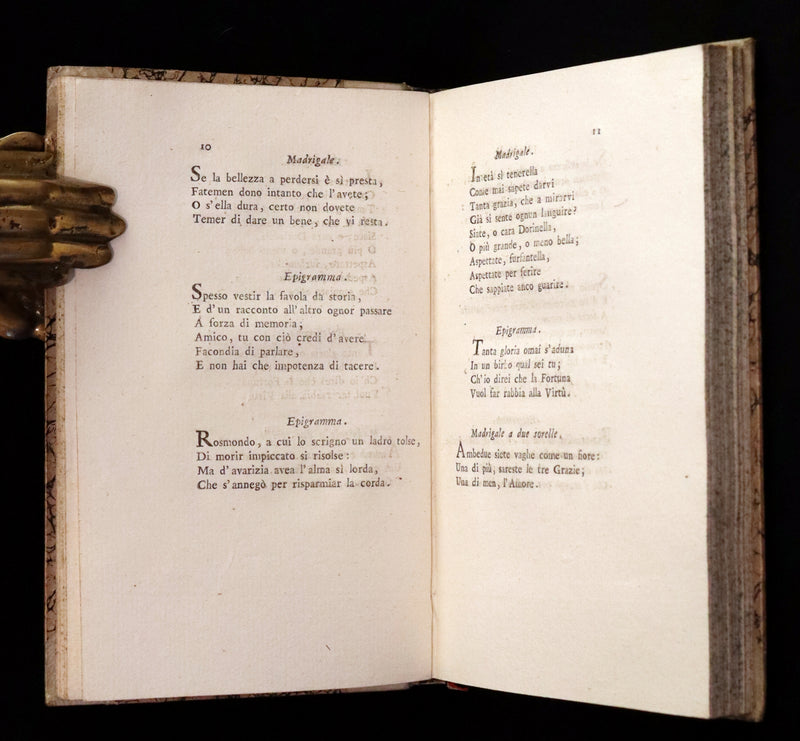 10
Madrigale.
Se la bellezza a perdersi è sì presta,
Fatemen dono intanto che l'avete;
O s'ella dura, certo non dovete
Temer di dare un bene, che vi resta.
Epigramma.
Spesso vestir la favola da storia,
E d'un racconto all'altro ognor passare
A forza di memoria;
Amico, tu con ciò credi d'avere
Facondia di parlare,
E non hai che impotenza di tacere.
Epigramma.
Rosmondo, a cui lo scrigno un ladro tolse,
Di morir impiccato si risolse:
Ma d'avarizia avea l'alma sì lorda,
Che s'annegò per risparmiar la corda.
11
Madrigale.
In età sì tenerella
Come mai sapete darvi
Tanta grazia, che a mirarvi
Già si sente ognun languire?
Siate, o cara Dorinella,
O più grande, o meno bella;
Aspettate, furfantella,
Aspettate per ferire
Che sappiate anco guarire.
Epigramma.
Tanta gloria omai s'aduna
In un birbo qual sei tu;
Ch'io direi che la Fortuna
Vuol far rabbia alla Virtù.
Madrigale a due sorelle.
Ambedue siete vaghe come un fiore:
Una di più, sareste le tre Grazie;
Una di men, l'Amore.